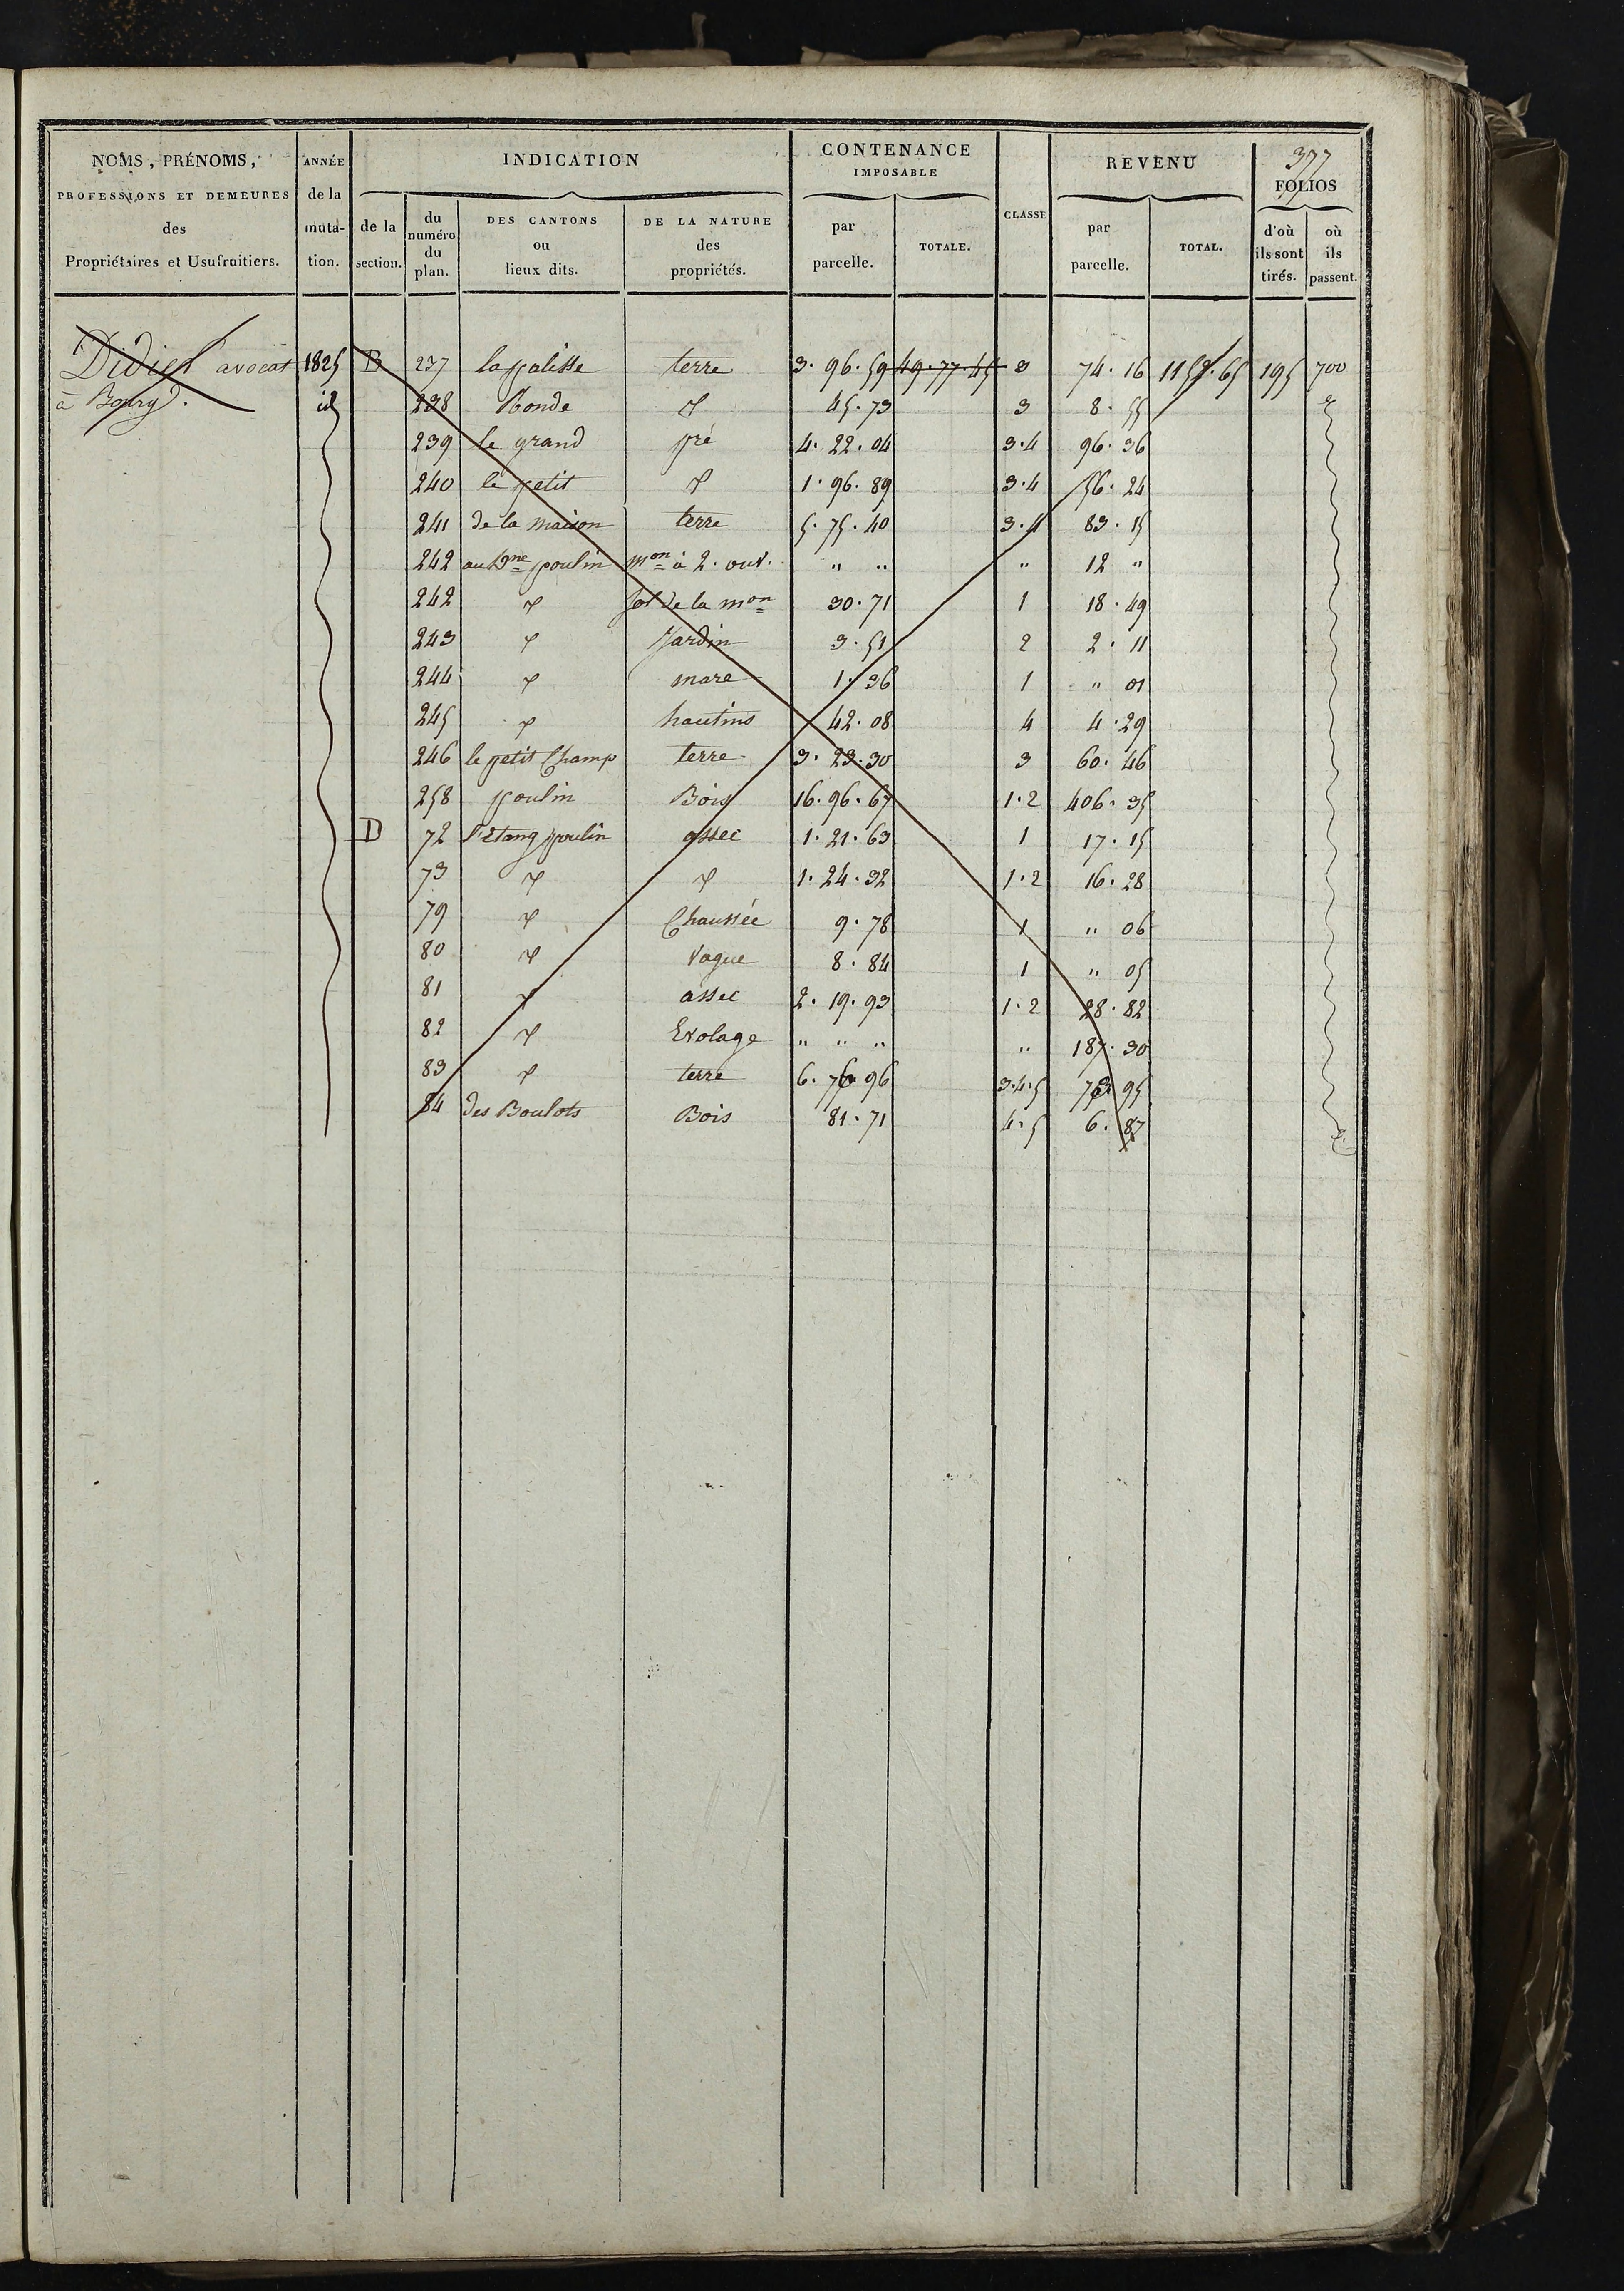 377
NOMS, PRÉNOMS, PROFESSIONS ET DEMEURES des Propriétaires et Usufruitiers. | ANNÉE de la muta-tion. | INDICATION | CONTENANCE IMPOSABLE | CLASSE | REVENU | FOLIOS
de la section. | du numéro du plan. | DES CANTONS ou lieux dits. | DE LA NATURE des propriétés. | par parcelle. | TOTALE. | par parcelle. | TOTAL. | d'où ils sont tirés. | où ils passent.
Didier avocat 1825 B 237 la palisse terre 3. 96. 59 49. 77. 45 3 74. 16 1152. 65 195 700
à Bourg. id 238 Ronde d 45. 73 3 8. 55
239 le grand pré 4. 22. 04 3.4 96. 36
240 le petit d 1. 96. 89 3.4 56. 24
241 de la maison terre 5. 75. 40 3.4 83. 15
242 au Dne poulin mon à 2. ouv. " " " 12 "
242 d sol de la mon 30. 71 1 18. 49
243 d Jardin 3. 51 2 2. 11
244 d mare 1. 36 1 " 01
245 d hautins 42. 08 4 4. 29
246 le petit Champ terre 3. 23. 30 3 60. 46
258 poulin Bois 16. 96. 67 1.2 406. 35
D 72 l'Etang poulin assec 1. 21. 63 1 17. 15
73 d d 1. 24. 32 1.2 16. 28
79 d Chaussée 9. 78 1 " 06
80 d Vague 8. 84 1 " 05
81 d assec 2. 19. 93 1.2 28. 82
82 d Evolage " " " " 187. 30
83 d terre 6. 76 96 3.4.5 73 95
84 des Boulots Bois 81. 71 4.5 6. 87